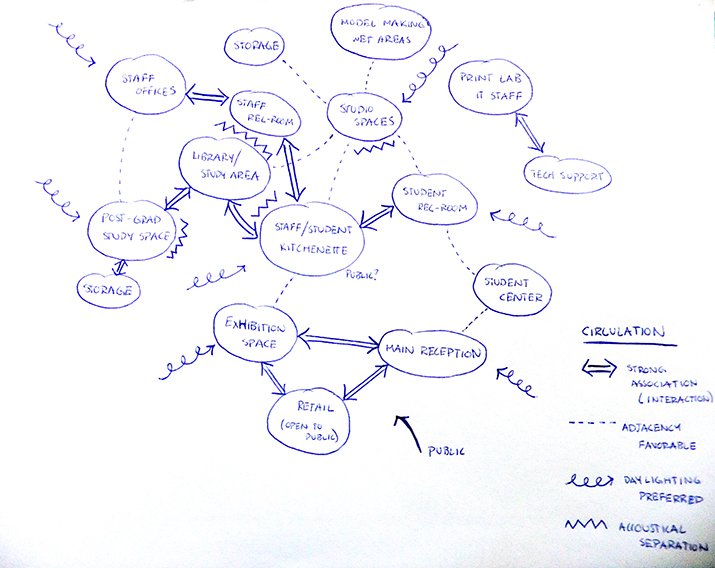 MODEL MAKING
WET AREAS
STORAGE
STAFF
OFFICES
STAFF
REC-ROOM
STUDIO
SPACES
PRINT LAB
IT STAFF
LIBRARY/
STUDY AREA
TECH SUPPORT
STUDENT
REC-ROOM
POST-GRAD
STUDY SPACE
STAFF/STUDENT
KITCHENETTE
PUBLIC?
STORAGE
STUDENT
CENTER
EXHIBITION
SPACE
MAIN RECEPTION
RETAIL
(OPEN TO
PUBLIC)
PUBLIC
CIRCULATION
STRONG
ASSOCIATION
(INTERACTION)
ADJACENCY
FAVORABLE
DAYLIGHTING
PREFERRED
ACCOUSTICAL
SEPARATION